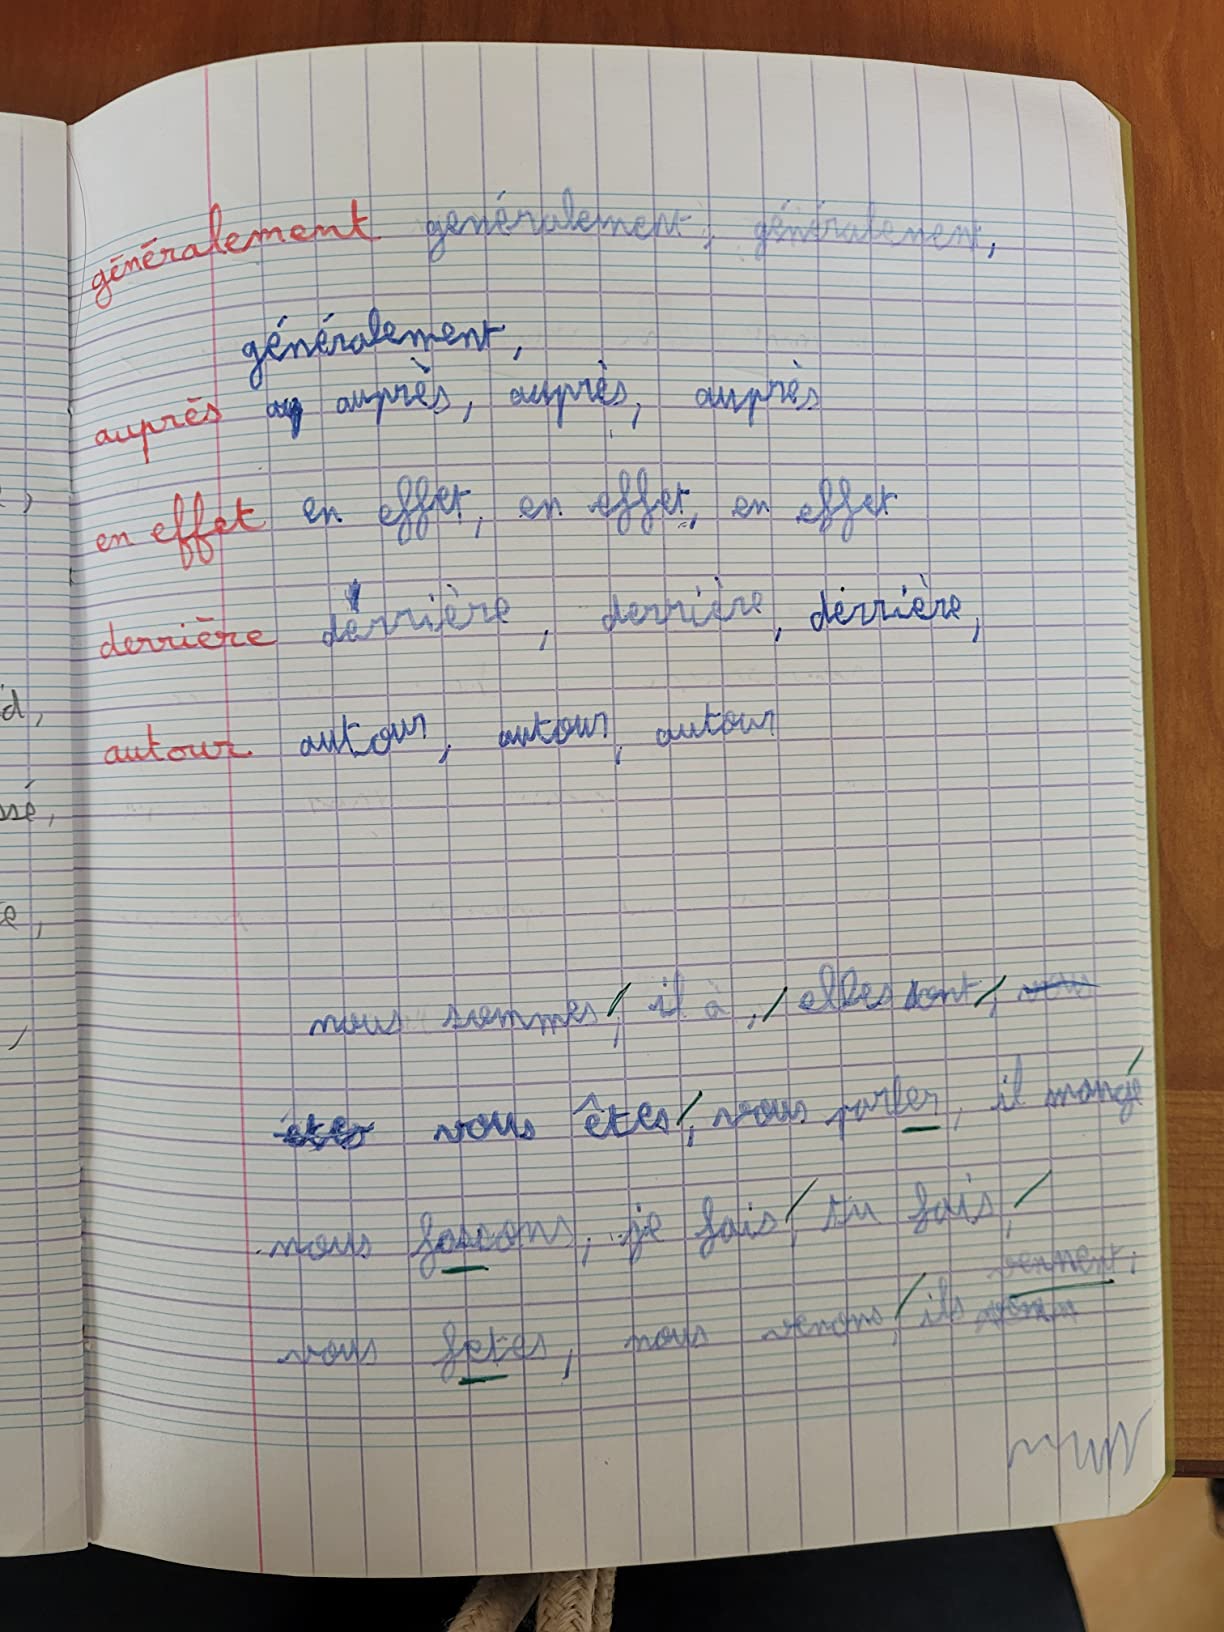 généralement généralement, généralement,
généralement,
auprès auprès, auprès, auprès
en effet en effet, en effet, en effet
derrière derrière, derrière, dérrière,
d,
autour autour, autour, autour
ssé,
e,
nous sommes, il à, elles sont,
vous êtes, vous parler, il mangé
nous fascons, je fais, tu fais,
vennent,
vous fetes, nous venons, ils